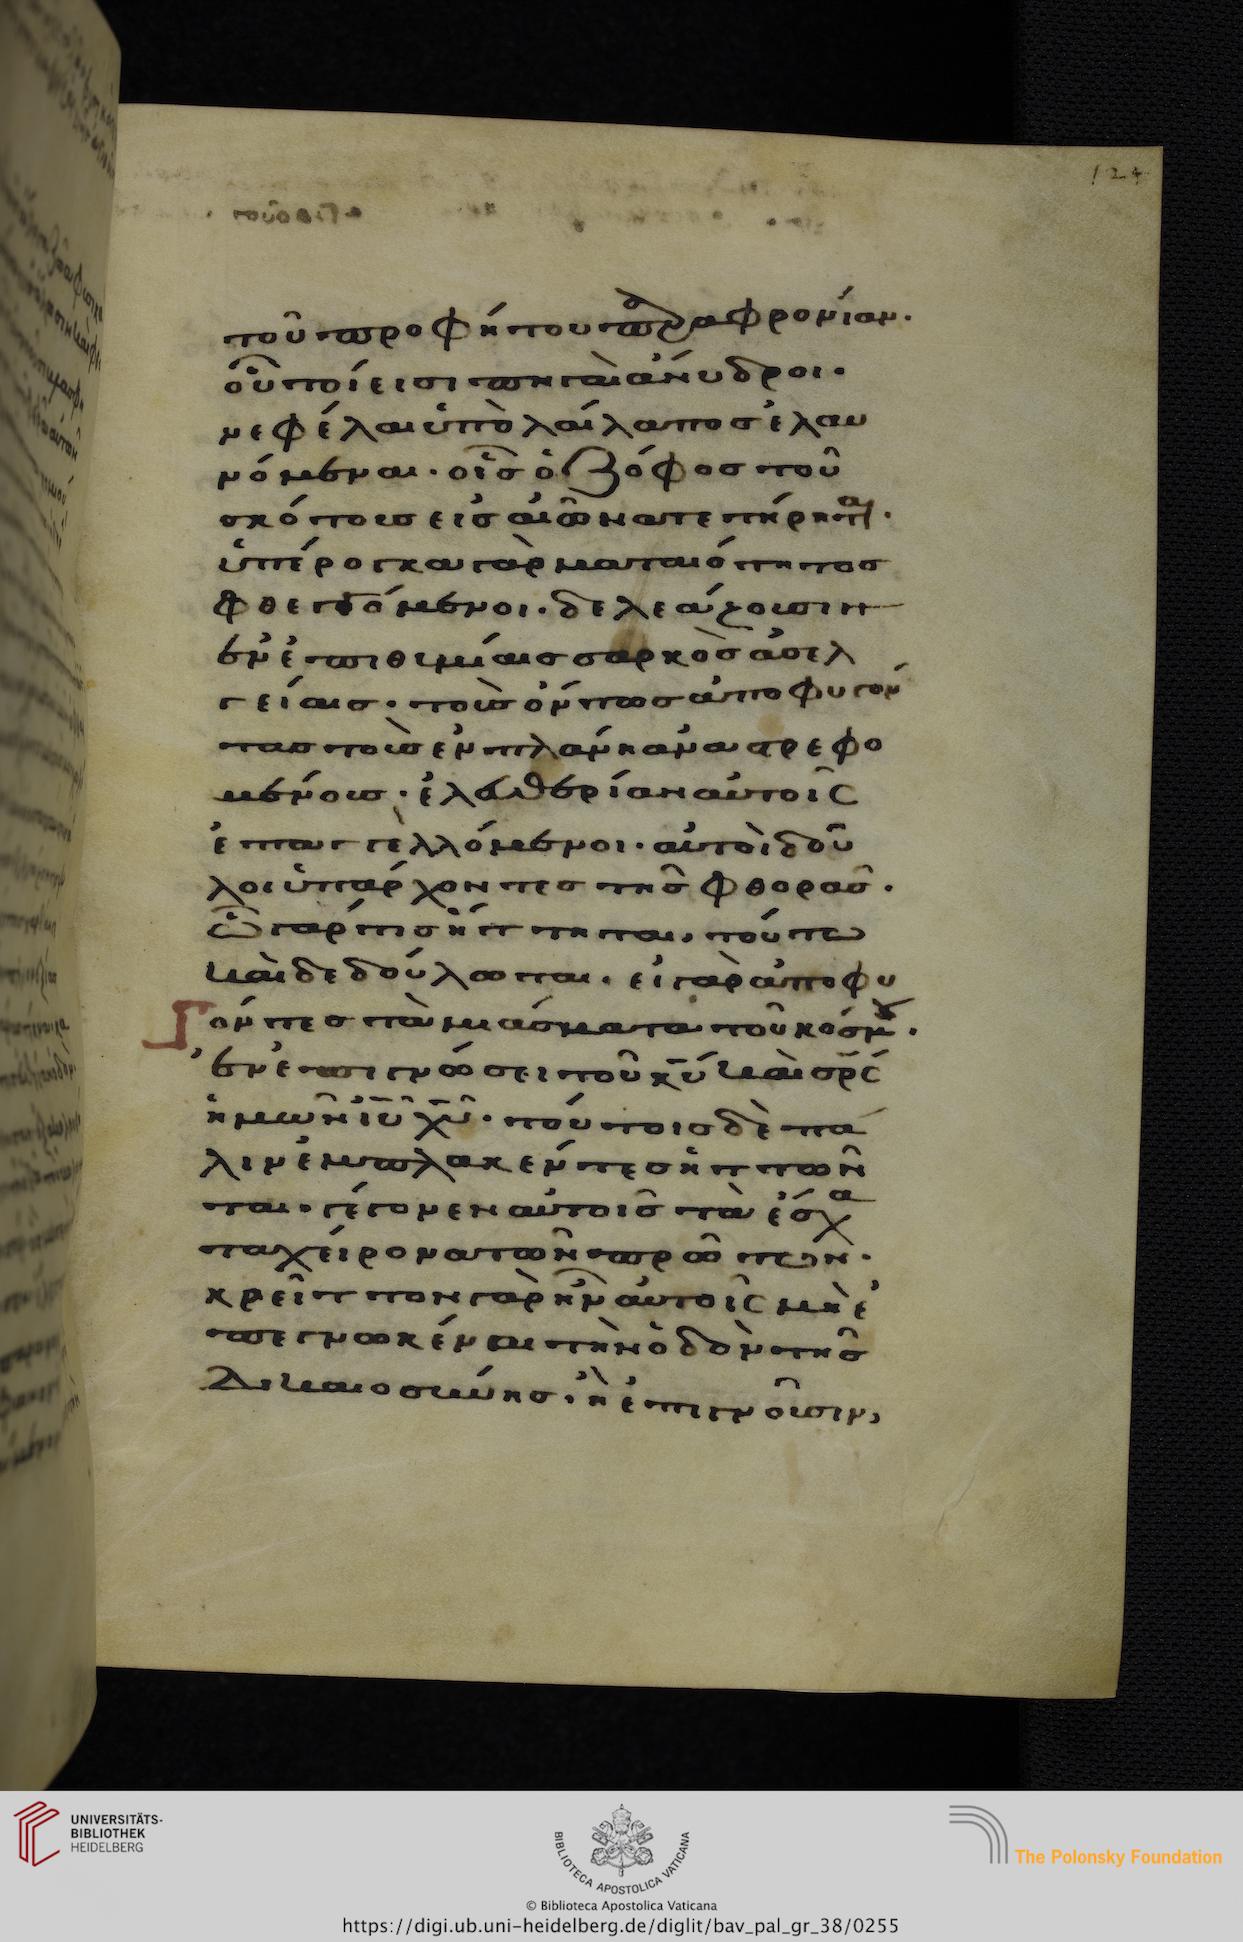 124
τοῦ προφήτου παραφρονίαν.
οὗτοί εἰσι πηγαὶ ἄνυδροι.
νεφέλαι ὑπὸ λαίλαπος ἐλαυ
νόμεναι. οἷς ὁ ζόφος τοῦ
σκότους εἰς αἰῶνα τετήρητ(αι).
ὑπέρογκα γὰρ ματαιότητος
φθεγγόμενοι. δελεάζουσιν
ἐν ἐπιθυμίαις σαρκὸς ἀσελ
γείαις. τοὺς ὄντως ἀποφυγόν
τας τοὺς ἐν πλάνη ἀναστρεφο
μένους. ἐλευθερίαν αὐτοῖς
ἐπαγγελλόμενοι. αὐτοὶ δοῦ
λοι ὑπάρχοντες τῆς φθορᾶς.
ᾧ γάρ τις ἥττηται, τούτω
καὶ δεδούλωται. εἰ γὰρ ἀποφυ
γόντες τὰ μιάσματα τοῦ κόσμου.
ἐν ἐπιγνώσει τοῦ κυ καὶ σρς
ἡμῶν ιυ χυ. τούτοις δὲ πά
λιν ἐμπλακέντες ἡττῶν
ται. γέγονεν αὐτοῖς τὰ ἔσχα
τα χείρονα τῶν πρώτων.
κρεῖττον γὰρ ἦν αὐτοῖς μὴ ἐ
πεγνωκέναι τὴν ὁδὸν τῆς
δικαιοσύνης. ἢ ἐπιγνοῦσιν,
UNIVERSITÄTS-
BIBLIOTHEK
HEIDELBERG
BIBLIOTECA APOSTOLICA VATICANA
The Polonsky Foundation
© Biblioteca Apostolica Vaticana
https://digi.ub.uni-heidelberg.de/diglit/bav_pal_gr_38/0255